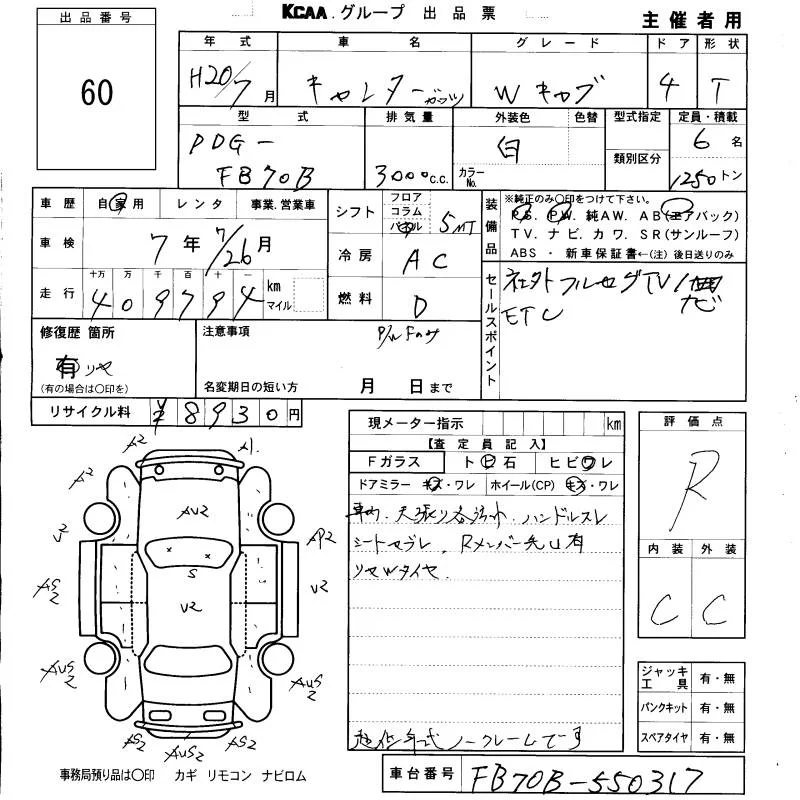 KCAA.グループ 出品票
主催者用
出品番号
60
年式 車名 グレード ドア 形状
H20/7月 キャンター ガッツ Wキャブ 4 T
型式 排気量 外装色 色替 型式指定 定員・積載
PDG-
FB70B
3000c.c.
白
カラーNo.
類別区分
6名
1250トン
車歴 自家用 レンタ 事業.営業車
車検 7年7/26月
走行 十万 万 千 百 十 一
409794 km マイル
シフト フロア コラム パネル 5MT
冷房 AC
燃料 D
装備品 ※純正のみ〇印をつけて下さい。
P.S. P.W. 純AW. AB(エアバック)
TV. ナビ. カワ. SR(サンルーフ)
ABS ・ 新車保証書←(注)後日送りのみ
セールスポイント
社外フルセグTV/
ナビ
ETC
修復歴 箇所
有 リヤ
(有の場合は〇印を)
注意事項 P/W Fのみ
名変期日の短い方 月 日まで
リサイクル料 ¥8930円
現メーター指示 km
【査定員記入】
Fガラス ト ビ 石 ヒビワレ
ドアミラー キズ・ワレ ホイール(CP) キズ・ワレ
車内、天張り各汚れ・ハンドルスレ
シートヤブレ、Rメンバー先凹有
リヤWタイヤ
評価点
R
内装 外装
C C
A2 A1
A2
AU2
AP2
S
AS2 V2 V2
AUS2 AUS2
AS2 AUS2 AS2
ジャッキ工具 有・無
パンクキット 有・無
スペアタイヤ 有・無
低年式ノークレームです
事務局預り品は〇印 カギ リモコン ナビロム
車台番号 FB70B-550317